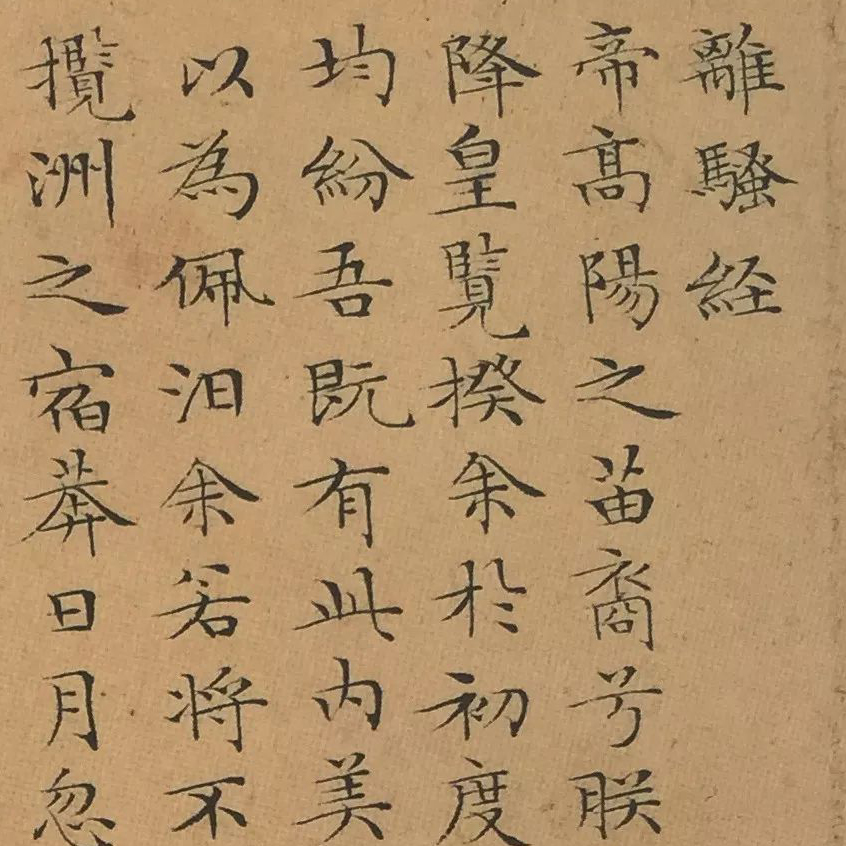 離騷経
帝高陽之苗裔兮朕
降皇覽揆余於初度
均紛吾既有此内美
以為佩汩余若将不
攬洲之宿莽日月忽